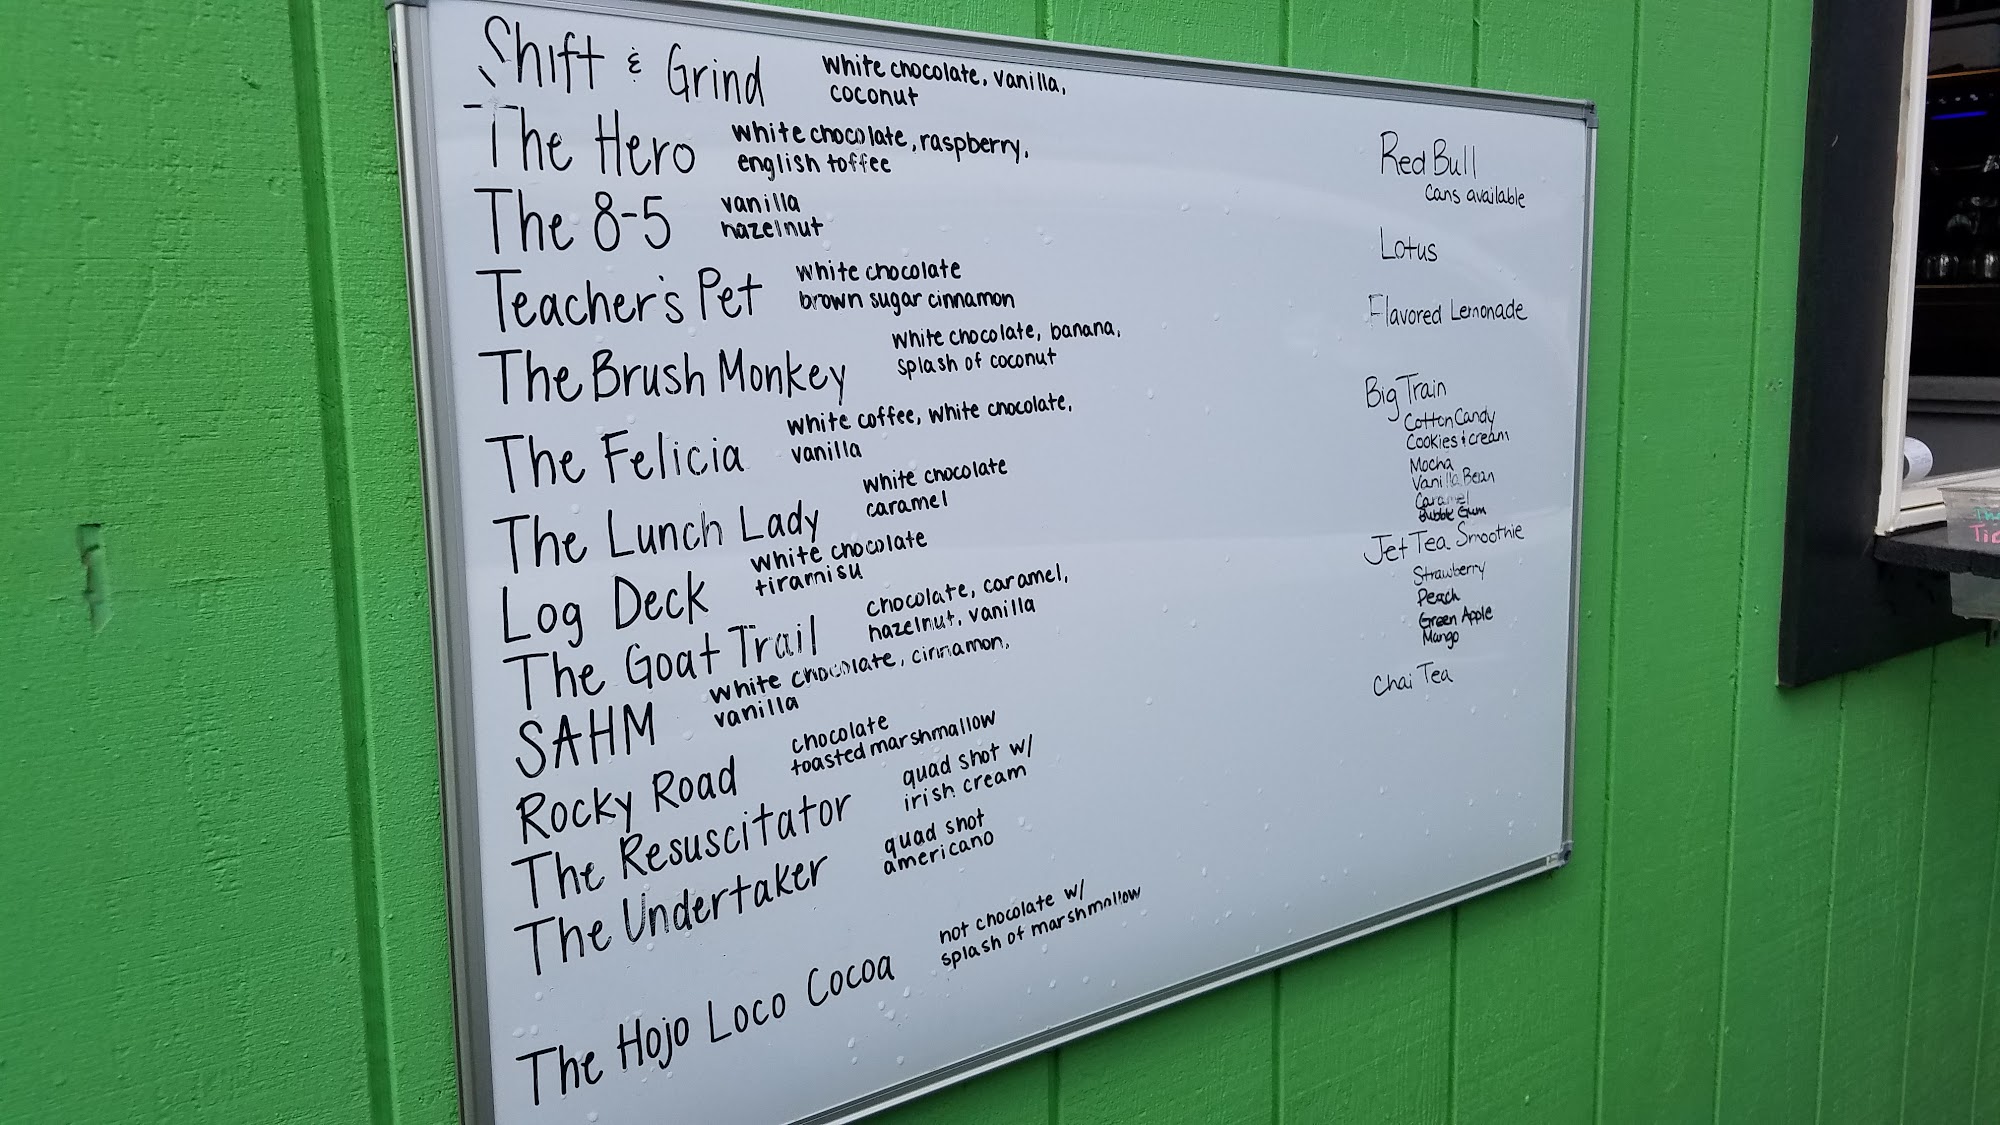 Shift & Grind white chocolate, vanilla,
coconut
The Hero white chocolate, raspberry,
english toffee
The 8-5 vanilla
hazelnut
Teacher's Pet white chocolate
brown sugar cinnamon
The Brush Monkey white chocolate, banana,
splash of coconut
The Felicia white coffee, white chocolate,
vanilla
The Lunch Lady white chocolate
caramel
Log Deck white chocolate
tiramisu
The Goat Trail chocolate, caramel,
hazelnut, vanilla
SAHM white chocolate, cinnamon,
vanilla
Rocky Road chocolate
toasted marshmallow
The Resuscitator quad shot w/
irish cream
The Undertaker quad shot
americano
The Hojo Loco Cocoa hot chocolate w/
splash of marshmallow
Red Bull
Cans available
Lotus
Flavored Lemonade
Big Train
Cotton Candy
Cookies & cream
Mocha
Vanilla Bean
Caramel
Bubble Gum
Jet Tea Smoothie
Strawberry
Peach
Green Apple
Mango
Chai Tea